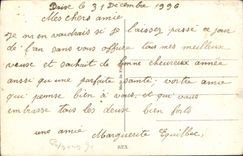 Brive le 31 Décembre 1936
Mes chers amis
Je m en voudrais si je laissez passé ce jour
de l'an sans vous offrir tous mes meilleur
veuse et souhait de bonne heureuse année
aussi qu une parfaite santé. votre amie
qui pense bien à vous. et que vous
embrasse tous les deux bien fort
une amie Marguerite
REX